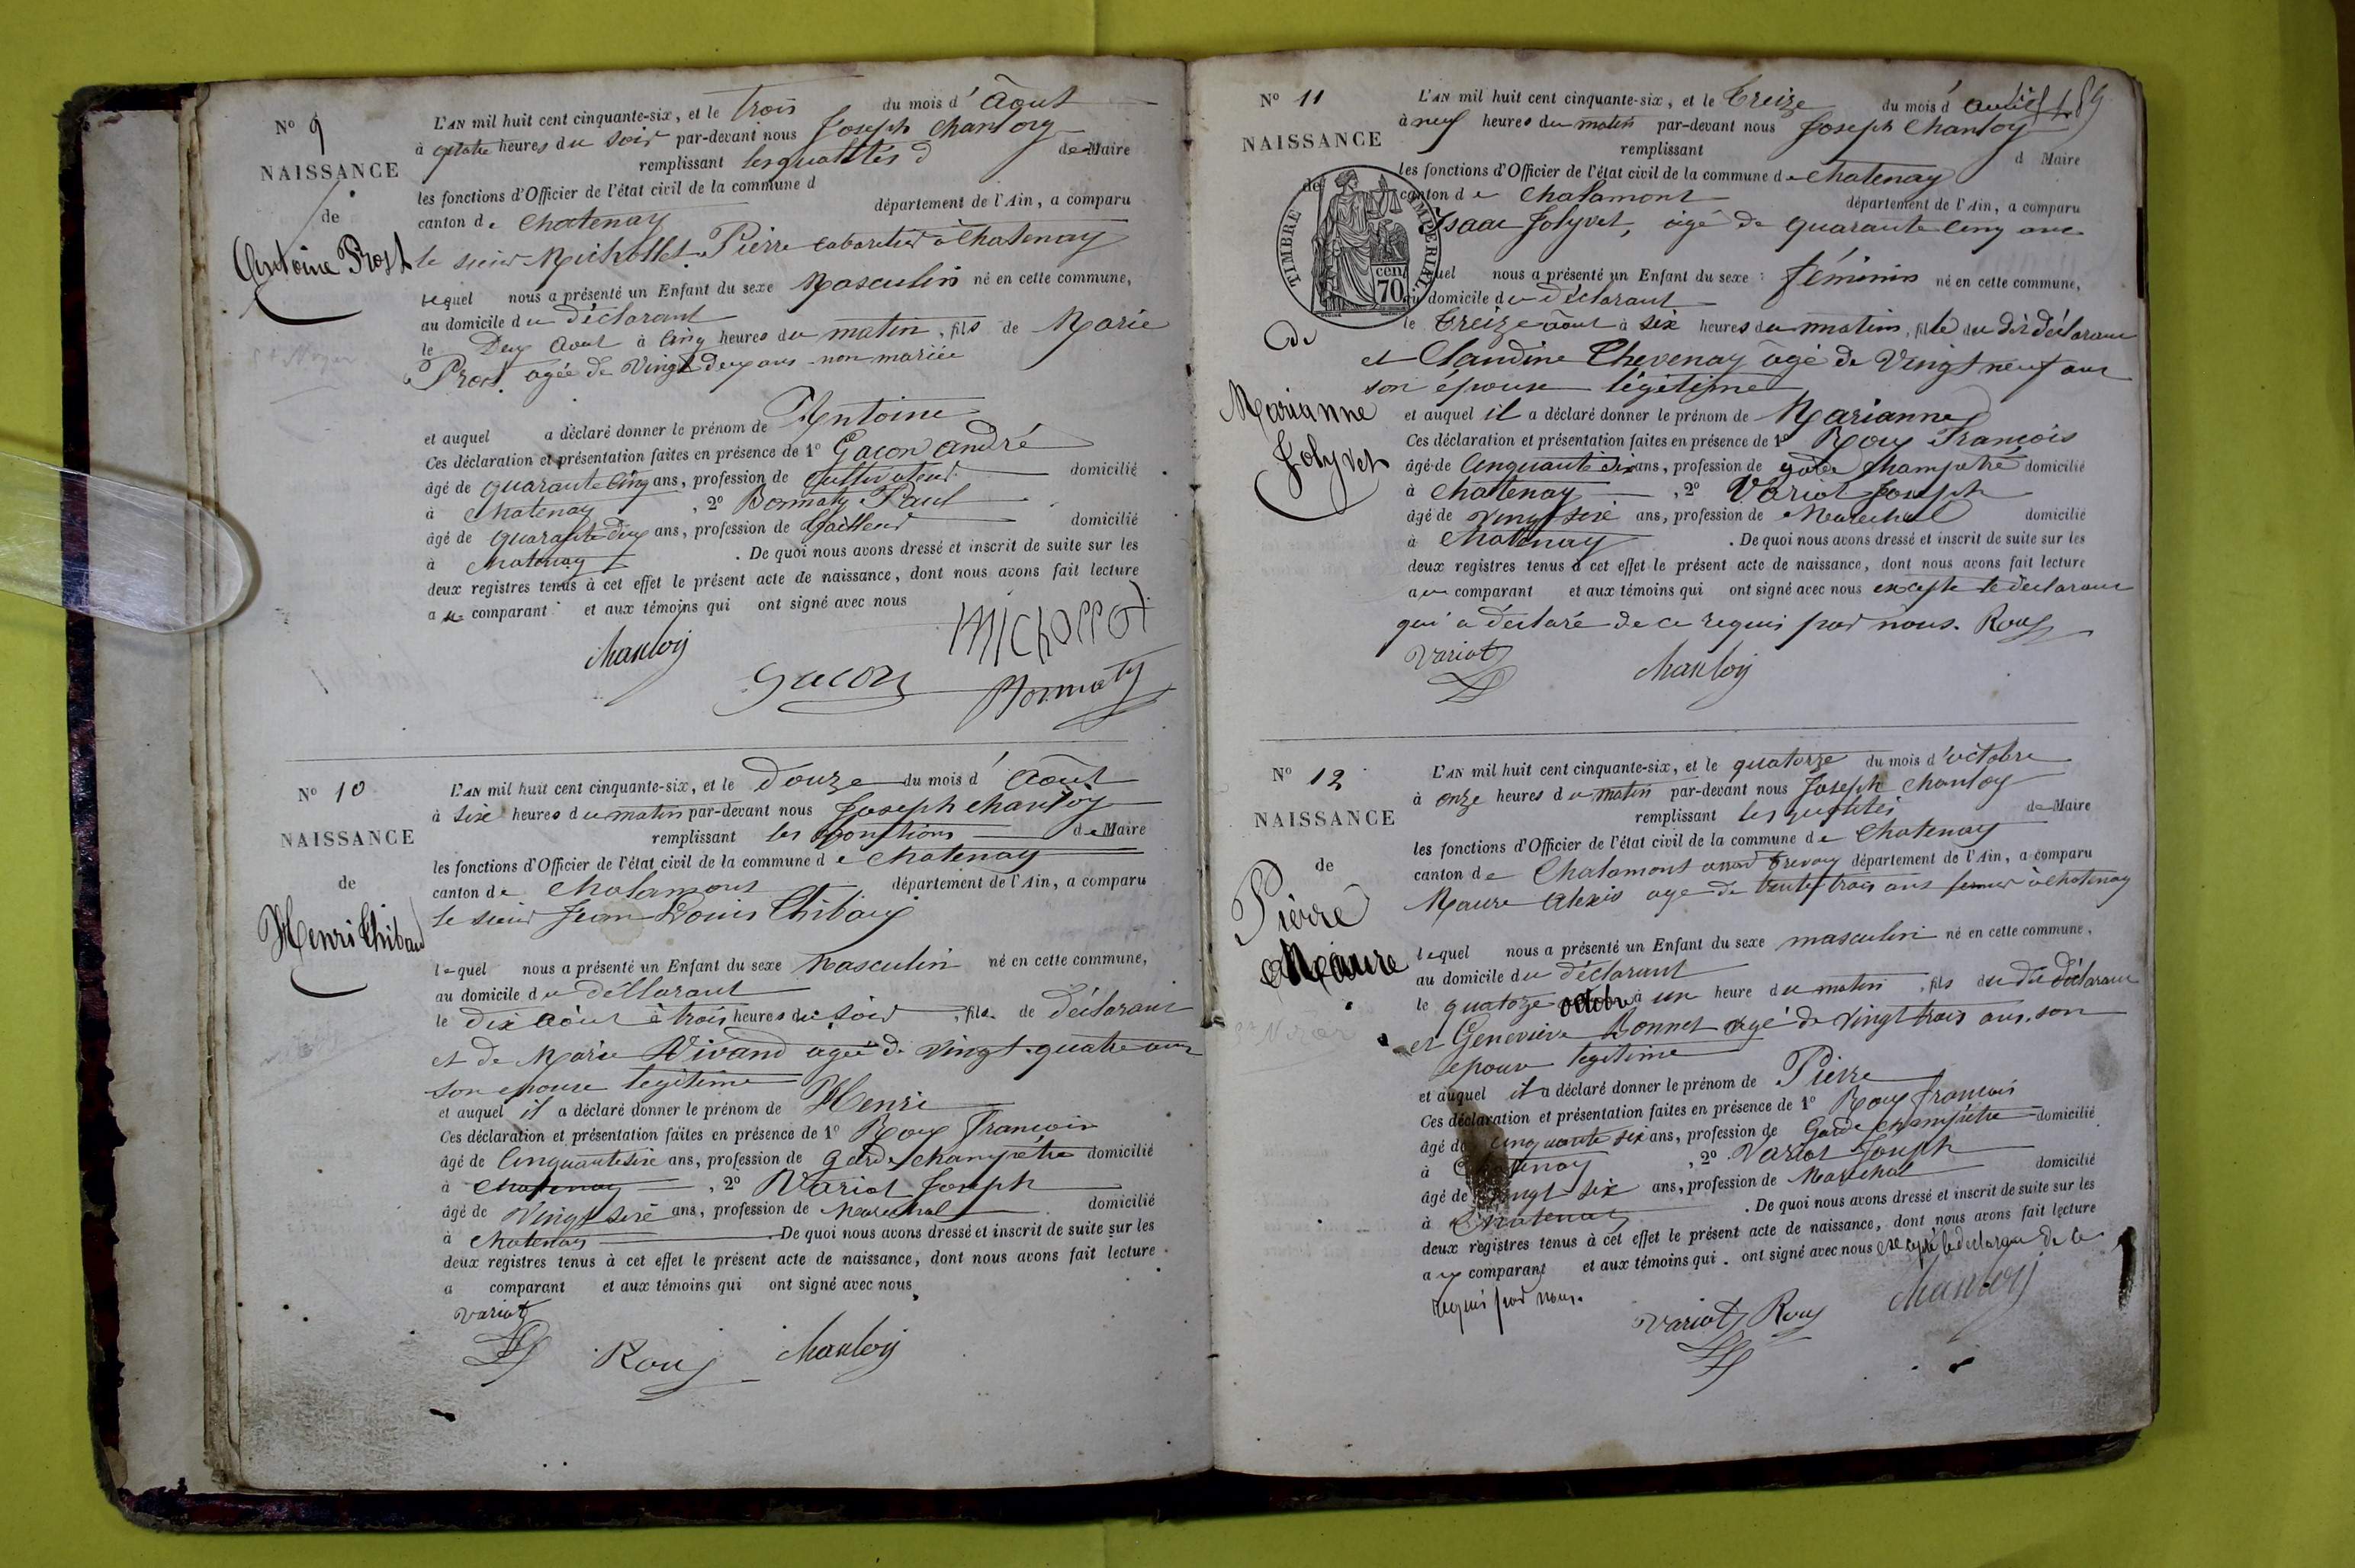 N° 9
NAISSANCE
de
Antoine Prost
L'AN mil huit cent cinquante-six, et le trois du mois d'Août
à quatre heures du soir par-devant nous Joseph Chanloy
remplissant les qualités d de Maire
les fonctions d'Officier de l'état civil de la commune d
canton de Chatenay département de l'Ain, a comparu
le sieur Michollet Pierre cabaretier à Chatenay
lequel nous a présenté un Enfant du sexe Masculin né en cette commune,
au domicile du déclarant
le Deux Aout à cinq heures du matin, fils de Marie
Prost agée de Vingt deux ans non mariée
et auquel a déclaré donner le prénom de Antoine
Ces déclaration et présentation faites en présence de 1° Gacon andré
âgé de quarante cinq ans, profession de Cultivateur domicilié
à Chatenay, 2° Bonnaty Paul
âgé de quarante deux ans, profession de tailleur domicilié
à Chatenay. De quoi nous avons dressé et inscrit de suite sur les
deux registres tenus à cet effet le présent acte de naissance, dont nous avons fait lecture
a comparant et aux témoins qui ont signé avec nous
Chanloy Gacon Michollet Bonnaty
N° 10
NAISSANCE
de
Henri Thibaud
L'AN mil huit cent cinquante-six, et le Douze du mois d'Août
à Six heures du matin par-devant nous Joseph Chanloy
remplissant les fonctions de Maire
les fonctions d'Officier de l'état civil de la commune de Chatenay
canton de Chalamont département de l'Ain, a comparu
le sieur Jean Louis Thibaud
lequel nous a présenté un Enfant du sexe Masculin né en cette commune,
au domicile du déclarant
le dix Août à trois heures du soir, fils de déclarant
et de Marie Vivand agée de vingt quatre ans
son epouse legitime
et auquel il a déclaré donner le prénom de Henri
Ces déclaration et présentation faites en présence de 1° Roux François
âgé de Cinquante sixe ans, profession de Garde champêtre domicilié
à Chatenay, 2° Variot Joseph
âgé de Vingt sixe ans, profession de Marechal domicilié
à Chatenay. De quoi nous avons dressé et inscrit de suite sur les
deux registres tenus à cet effet le présent acte de naissance, dont nous avons fait lecture
a comparant et aux témoins qui ont signé avec nous
Variot Roux Chanloy
N° 11
NAISSANCE
de
TIMBRE IMPERIAL
cen 70
de
Marianne
Jolyvet
L'AN mil huit cent cinquante-six, et le Treize du mois d'août
à neuf heures du matin par-devant nous Joseph Chanloy
remplissant d Maire
les fonctions d'Officier de l'état civil de la commune de Chatenay
canton de Chalamont département de l'Ain, a comparu
Isaac Jolyvet, agé de quarante cinq ans
quel nous a présenté un Enfant du sexe : féminin né en cette commune,
au domicile du déclarant
le Treize Août à six heures du matin, fille du dit déclarant
et Claudine Thevenay âgé de Vingt neuf ans
son épouse légitime
et auquel il a déclaré donner le prénom de Marianne
Ces déclaration et présentation faites en présence de 1° Roux François
âgé de Cinquante six ans, profession de garde champetre domicilié
à Chatenay, 2° Variot Joseph
âgé de vingt sixe ans, profession de Marechal domicilié
à Chatenay. De quoi nous avons dressé et inscrit de suite sur les
deux registres tenus à cet effet le présent acte de naissance, dont nous avons fait lecture
au comparant et aux témoins qui ont signé avec nous excepté le declarant
qui a déclaré de ce requis par nous. Roux
Variot Chanloy
N° 12
NAISSANCE
de
Pierre
Maure
L'AN mil huit cent cinquante-six, et le quatorze du mois d'octobre
à onze heures du matin par-devant nous Joseph Chanloy
remplissant les qualités de Maire
les fonctions d'Officier de l'état civil de la commune de Chatenay
canton de Chalamont Trevoux département de l'Ain, a comparu
Maure Alexis age de trente trois ans fermier à Chatenay
lequel nous a présenté un Enfant du sexe masculin né en cette commune,
au domicile du déclarant
le quatorze octobre à un heure du matin, fils du dit déclarant
et Geneviève Bonnet agé de vingt trois ans, son
epouse legitime
et auquel il a déclaré donner le prénom de Pierre
Ces déclaration et présentation faites en présence de 1° Roux François
âgé de cinquante six ans, profession de Garde champêtre domicilié
à Chatenay, 2° Variot Joseph
âgé de vingt six ans, profession de Marechal domicilié
à Chatenay. De quoi nous avons dressé et inscrit de suite sur les
deux registres tenus à cet effet le présent acte de naissance, dont nous avons fait lecture
au comparant et aux témoins qui. ont signé avec nous excepté le declarant de ce
requis par nous.
Variot Roux Chanloy